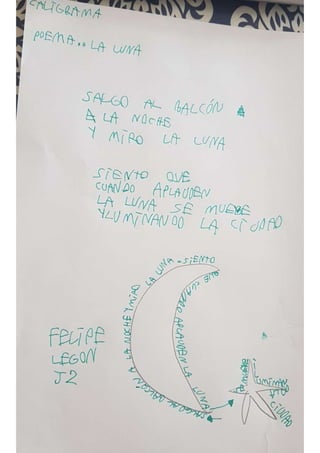 CALIGRAMA
POEMA.. LA LUNA
SALGO AL BALCÓN
A LA NOCHE
Y MIRO LA LUNA
SIENTO QUE
CUANDO APLAUDEN
LA LUNA SE MUEVE
YLUMINANDO LA CIUDAD
SALGO AL BALCÓN A LA NOCHE Y MIRO LA LUNA - SIENTO
QUE CUANDO APLAUDEN LA LUNA
CIUDAD
FELIPE
LEGON
J2